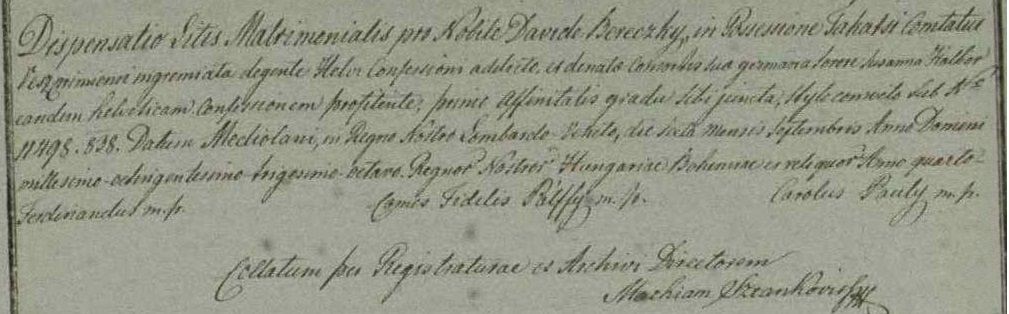 Dispensatio Litis Matrimonialis pro Nobile Davide Bereczky, in Possessione Takatsi Comitatui
ingremiata degente Helv: Confessioni addicto, et denatae Consortis suae germana Sorore Susanna
eandem helveticam Confessionem profitente, primo Affinitatis gradu sibi juncta, stylo consveto sub Nro
11498. 838. Datum Mediolani, in Regno Nostro Lombardo-Veneto, die sexta mensis Septembris Anno Domini
millesimo-octingentesimo-trigesimo-octavo. Regnor Nostror Hungariae Bohemiae et reliquor Anno quarto.
Ferdinandus m. p. Comes Fidelis Pálffy m. p. Carolus Pauly m. p.
Collatum per Registraturae et Archivi Directorem
Mathiam